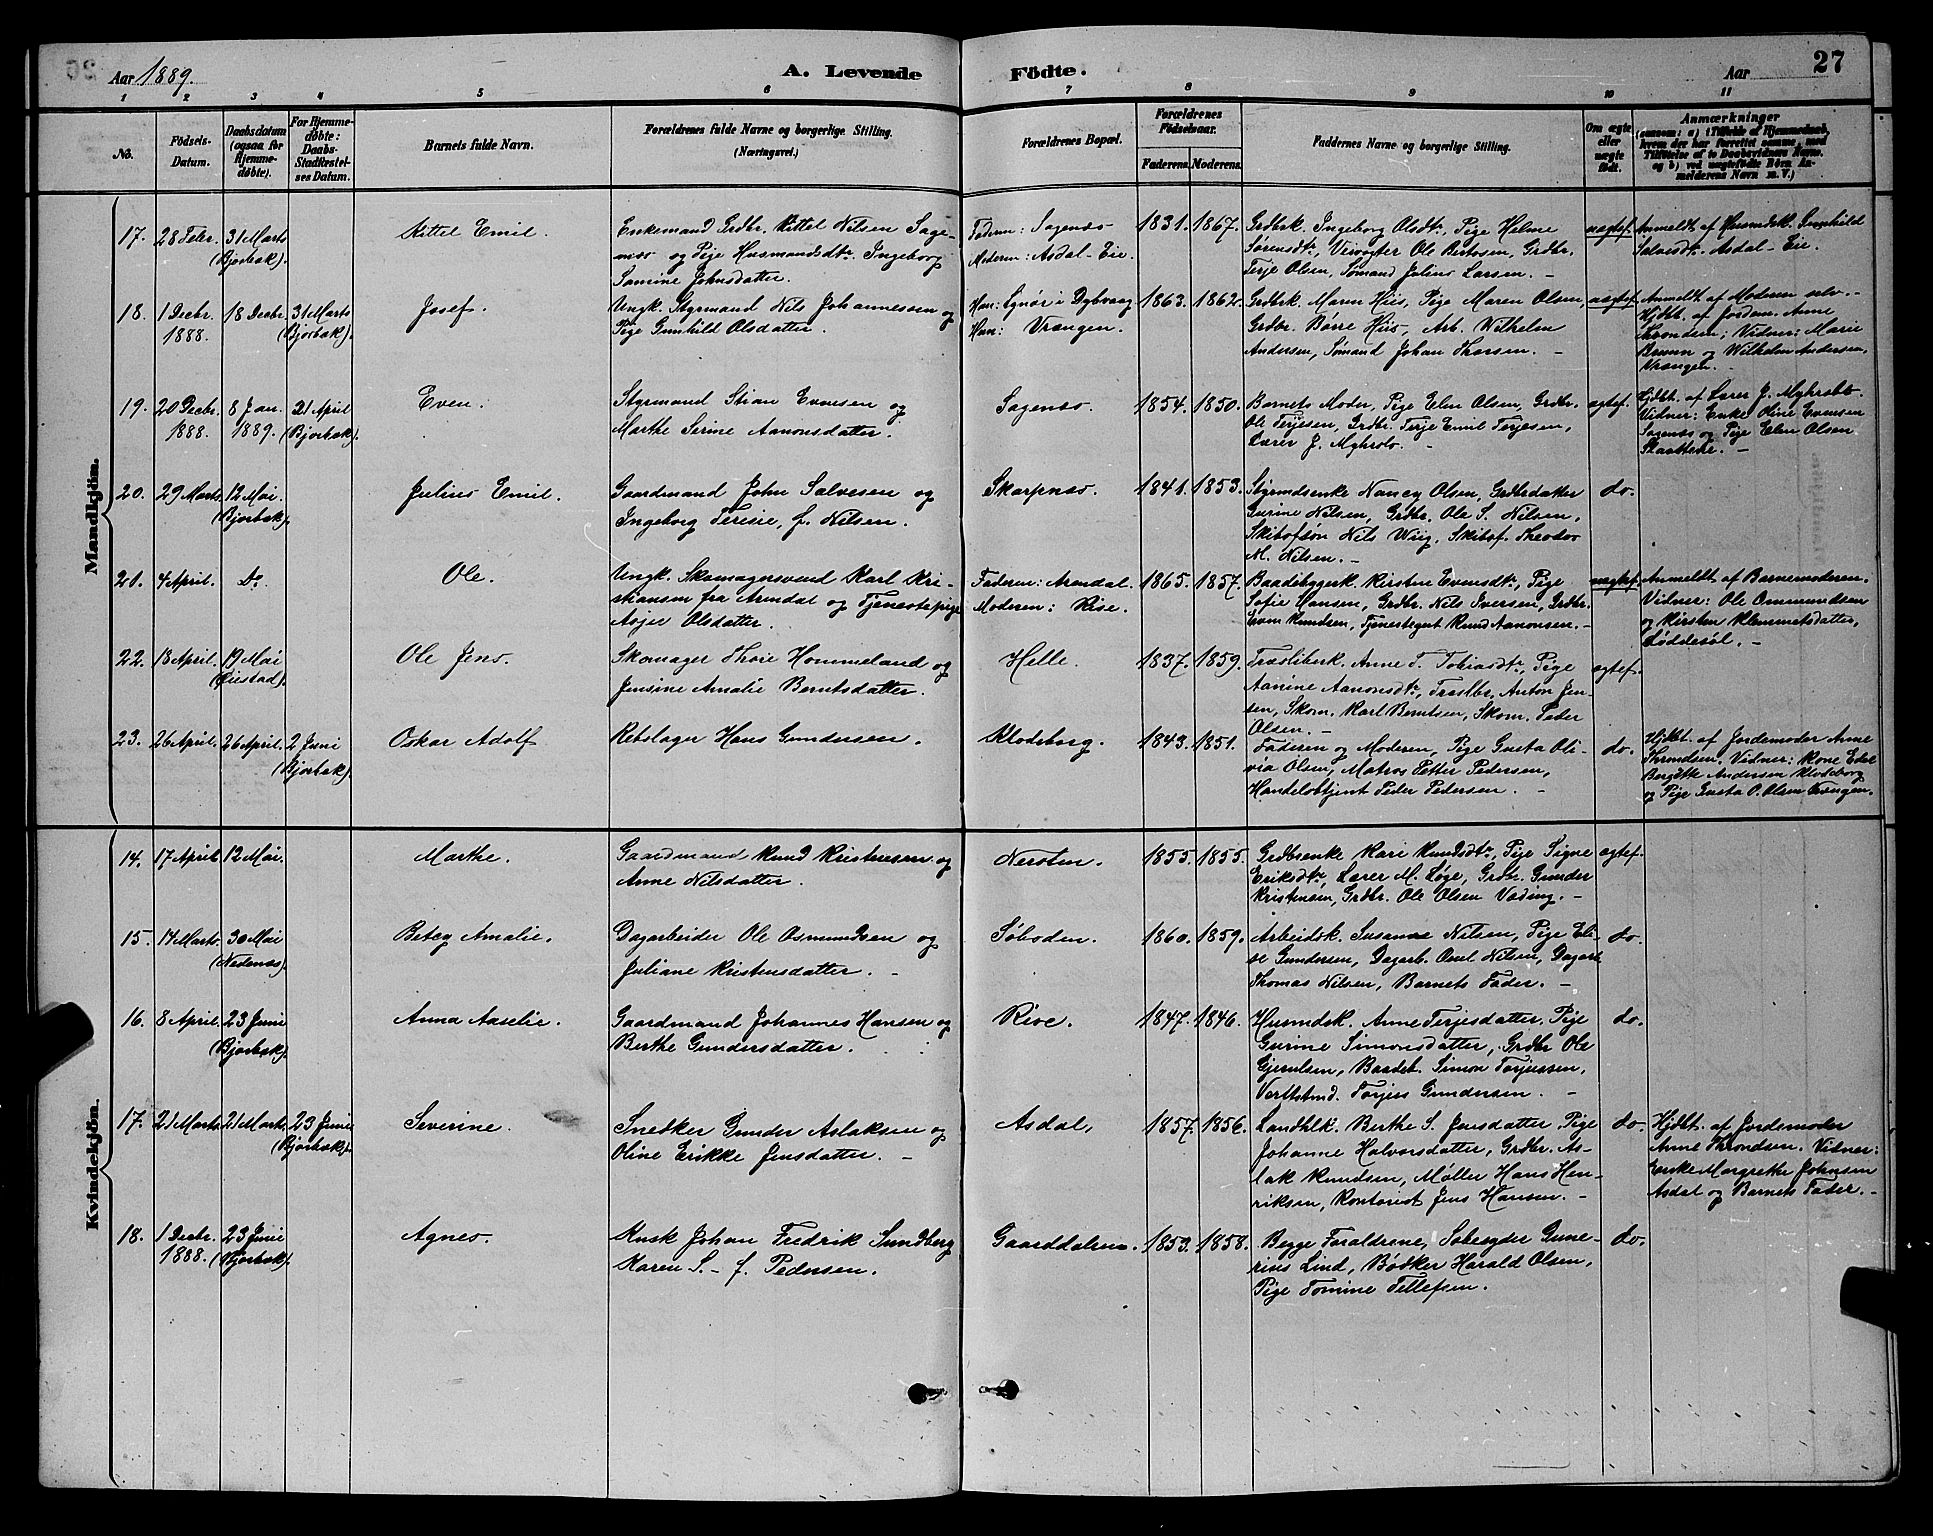 Aar 1889.
A. Levende
Födte.
Aar
27
1 2 3 4 5 6 7 8 9 10 11
No.
Födsels-
Datum.
Daabsdatum
(ogsaa for
Hjemme-
døbte).
For Hjemme-
døbte:
Daabs-
Stadfæstel-
ses Datum.
Barnets fulde Navn.
Forældrenes fulde Navne og borgerlige Stilling.
(Næringsvei.)
Forældrenes Bopæl.
Forældrenes
Fødselsaar.
Faderens. Moderens.
Faddernes Navne og borgerlige Stilling.
Om ægte
eller
uægte
født.
Anmærkninger
Mandkjön.
17. 28 Febr. 31 Marts
(Bjorbæk).
Kittel Emil.
Enkemand Grdbr. Kittel Nilsen Sage-
næs og Pige Husmandsdtr. Ingeborg
Samine Johnsdatter.
Faderen: Sagenæs
Moderen: Asdal-Eie.
1831. 1867.
Grdbrk. Ingeborg Olsdtr, Pige Helme
Sørensdtr, Ole Bertosen, Grdbr.
Terje Olsen, Sømand Julius Larsen. –
uægtef.
Anmeldt af Husmdsk. Gunhild
Salvesdtr. Asdal-Eie.
18. 1 Decbr. 1888. 18 Decbr. 31 Marts
(Bjorbæk).
Josef.
Ungk. Styrmand Nils Johannessen og
Pige Gunhild Olsdatter.
Han: Lyngør i Dybvaag
Hun: Vrangen.
1863. 1862.
Grdbrk. Maren Hiis, Pige Maren Olsen,
Grdbr. Børre Hiis, Arb. Wilhelm
Andersen, Sømand Johan Thorsen. –
uægtef.
Anmeldt af Moderen selv. –
Hjdbt. af Jordem. Anne
Throndsen; Vidner: Marie
Bruun og Wilhelm Andersen,
Vrangen. –
19. 20 Decbr. 1888. 8 Jan. 1889. 21 April
(Bjorbæk).
Even.
Styrmand Stian Evensen og
Marthe Serine Aanonsdatter.
Sagenæs.
1854. 1850.
Barnets Moder, Pige Elen Olsen, Grdbr.
Ole Terjesen, Grdbr. Terje Emil Terjesen,
Lærer J. Myhrsto. –
ægtef.
Hjdbt. af Lærer J. Myhrsto.
Vidner: Enke Oline Evensen
Sagenæs og Pige Elen Olsen
20. 29 Marts. 12 Mai.
(Bjorbæk).
Julius Emil.
Gaardmand John Salvesen og
Ingeborg Teresie, f. Nilsen.
Skarpnæs.
1841. 1853.
Styrmdsenke Nancy Olsen, Grdbrdatter
Gurine Nilsen, Grdbr. Ole S. Nilsen,
Skibsfsøn Nils Wiig, Skibsf. Theodor
M. Nilsen. –
do.
20. 4 April. Do.
Ole.
Ungk. Skomagersvend Karl Kri-
stiansen fra Arendal og Tjenestepige
Asjer Olsdatter.
Faderen: Arendal.
Moderen: Rise.
1865. 1857.
Baadbyggerk. Kirstine Evensdtr, Pige
Sofie Hansen, Grdbr. Nils Iversen, Grdbr.
Even Knudsen, Tjenestegut Knud Aanonsen. –
uægtef.
Anmeldt af Barnemoderen.
Vidner: Ole Ommundsen
og Kirsten Klemmetsdatter,
Løddesøl. –
22. 18 April. 19 Mai
(Øiestad).
Ole Jens.
Skomager Thore Hommeland og
Jensine Amalie Berntsdatter.
Helle.
1837. 1859.
Træsliberk. Anne T. Tobiasdtr, Pige
Aanine Aanonsdtr, Træslbr. Anton Jen-
sen, Skom. Karl Berntsen, Skom. Peder
Olsen. –
ægtef.
23. 26 April. 26 April. 2 Juni
(Bjorbæk).
Oskar Adolf
Rebslager Hans Gundersen.
Klodeborg.
1843. 1851.
Faderen og Moderen, Pige Gusta Oli-
via Olsen, Matros Petter Pedersen,
Handelsbtjent Peder Pedersen. –
do.
Hjdbt. af Jordemoder Anne
Throndsen. Vidner: Kone Edel
Bergitte Andersen Klodeborg
og Pige Gusta O. Olsen Vrangen.
Kvindekjön.
14. 17 April. 12 Mai.
Marthe.
Gaardmand Knud Kristensen og
Anne Nilsdatter.
Nersten.
1855. 1855.
Grdbrenke Kari Knudsdtr, Pige Signe
Eriksdtr, Lærer M. Løge, Grdbr. Gunder
Kristensen, Grdbr. Ole Olsen Vading. –
ægtef.
15. 14 Marts. 30 Mai
(Nedenæs).
Betzy Amalie.
Dagarbeider Ole Osmundsen og
Juliane Kristensdatter. –
Søboden.
1860. 1859.
Arbeidsk. Susanne Nilsen, Pige Eli-
se Gundersen, Dagarb. Nilsen, Dagarb.
Thomas Nilsen, Barnets Fader. –
do.
16. 8 April. 23 Juni
(Bjorbæk).
Anna Aaselie.
Gaardmand Johannes Hansen og
Berthe Gundersdatter.
Rise.
1847. 1846.
Husmdsk. Anne Terjesdatter, Pige
Gurine Simonsdatter, Grdbr Ole
Gjerulsen, Baadsb. Simon Torjussen,
Værftstmd. Torjus Gundersen. –
do.
17. 21 Marts. 21 Marts. 23 Juni
(Bjorbæk).
Severine.
Snedker Gunder Aslaksen og
Oline Erikke Jensdatter. –
Asdal,
1857. 1856.
Landhlk. Berthe S. Jensdatter, Pige
Johanne Halvorsdatter, Grdbr. As-
lak Knudsen, Møller Hans Hen-
riksen, Kontorist Jens Hansen. –
do.
Hjdbt. af Jordemoder
Anne Throndsen. Vidner:
Enke Margrethe Johnsen
Asdal og Barnets Fader. –
18. 1 Decbr. 1888. 23 Juni
(Bjorbæk).
Agnes.
Kusk Johan Fredrik Sundberg
Karen S. – f. Pedersen.
Gaarddalen.
1853. 1858.
Begge Forældrene, Gune-
rius Lind, Bødker Harald Olsen,
Pige Tomine Tellefsen.
do.